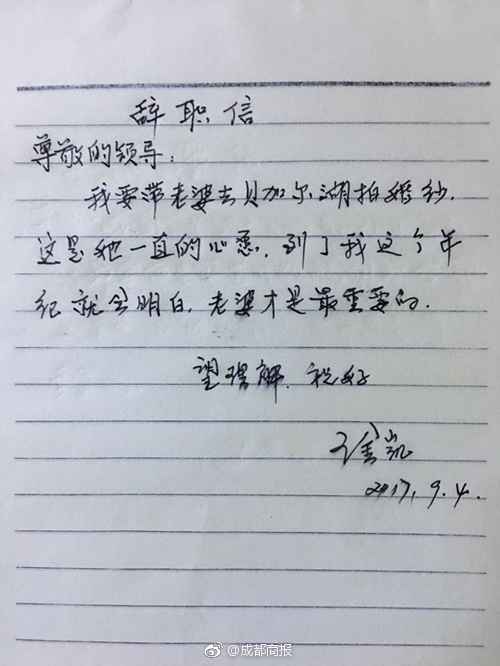 辞职信
尊敬的领导：
我要带老婆去贝加尔湖拍婚纱，
这是她一直的心愿，到了我这个年
纪就会明白，老婆才是最重要的.
望理解，祝好
徐凯
2017.9.4.
@成都商报